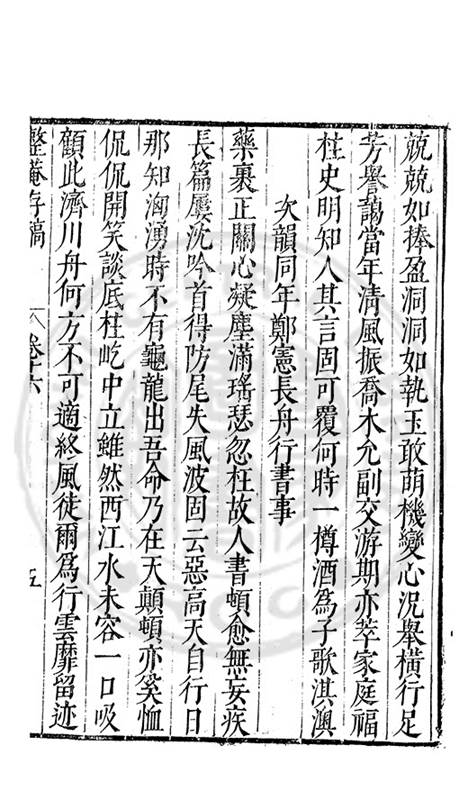 兢兢如捧盈洞洞如執玉敢萌機變心況舉橫行足
芳譽藹當年清風振喬木允副交游期亦萃家庭福
柱史明知人其言固可覆何時一樽酒為子歌淇澳
次韻同年鄭憲長舟行書事
藥裹正關心凝塵滿瑤瑟忽枉故人書頓愈無妄疾
長篇屢沈吟首得防尾失風波固云惡高天自行日
那知洶湧時不有龜龍出吾命乃在天顛頓亦奚恤
侃侃開笑談底柱屹中立雖然西江水未容一口吸
顧此濟川舟何方不可適終風徒爾為行雲靡留迹
整菴存稿 卷十六 五